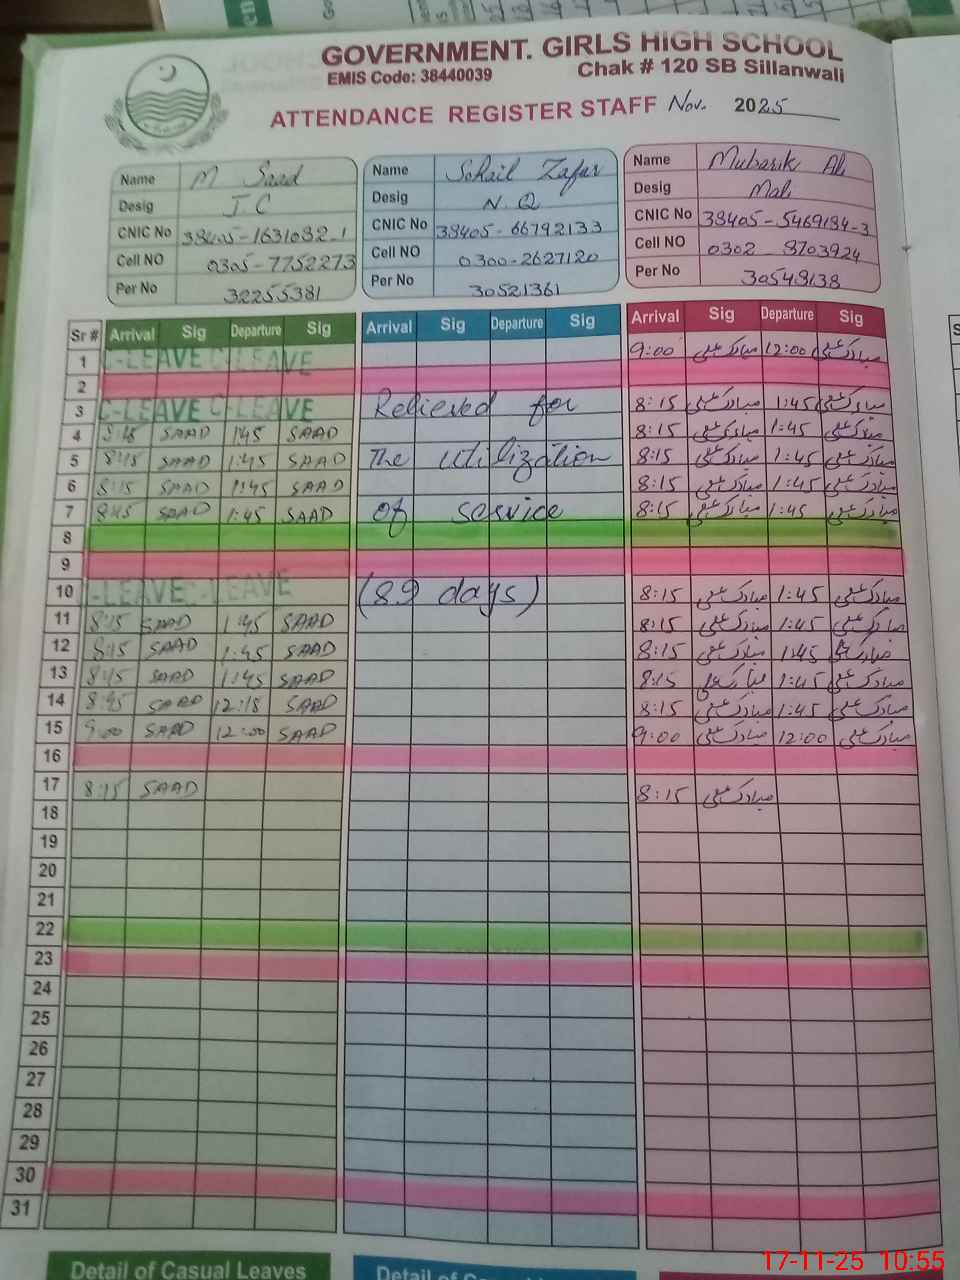 GOVERNMENT. GIRLS HIGH SCHOOL
EMIS Code: 38440039 Chak # 120 SB Sillanwali
ATTENDANCE REGISTER STAFF Nov. 2025
Name M Saad Name Sohail Zafar Name Mubarik Ali
Desig J.C Desig N.Q Desig Mali
CNIC No 38405-1631082-1 CNIC No 38405-66792133 CNIC No 38405-5469184-3
Cell NO 0305-7752273 Cell NO 0300-2627120 Cell NO 0302 8703924
Per No 32255381 Per No 30521361 Per No 30548138
Sr # Arrival Sig Departure Sig Arrival Sig Departure Sig Arrival Sig Departure Sig
1 C-LEAVE C-LEAVE 9:00 مبارک علی 12:00 مبارک علی
2
3 C-LEAVE C-LEAVE Relieved for 8:15 مبارک علی 1:45 مبارک علی
4 8:15 SAAD 1:45 SAAD 8:15 مبارک علی 1:45 مبارک علی
5 8:15 SAAD 1:45 SAAD The utilization 8:15 مبارک علی 1:45 مبارک علی
6 8:15 SAAD 1:45 SAAD 8:15 مبارک علی 1:45 مبارک علی
7 8:15 SAAD 1:45 SAAD of service 8:15 مبارک علی 1:45 مبارک علی
8
9
10 -LEAVE C-LEAVE (89 days) 8:15 مبارک علی 1:45 مبارک علی
11 8:15 SAAD 1:45 SAAD 8:15 مبارک علی 1:45 مبارک علی
12 8:15 SAAD 1:45 SAAD 8:15 مبارک علی 1:45 مبارک علی
13 8:15 SAAD 1:45 SAAD 8:15 مبارک علی 1:45 مبارک علی
14 SAAD 12:18 SAAD 8:15 مبارک علی 1:45 مبارک علی
15 9:00 SAAD 12:00 SAAD 9:00 مبارک علی 12:00 مبارک علی
16
17 8:15 SAAD 8:15 مبارک علی
18
19
20
21
22
23
24
25
26
27
28
29
30
31
Detail of Casual Leaves Detail of
17-11-25 10:55